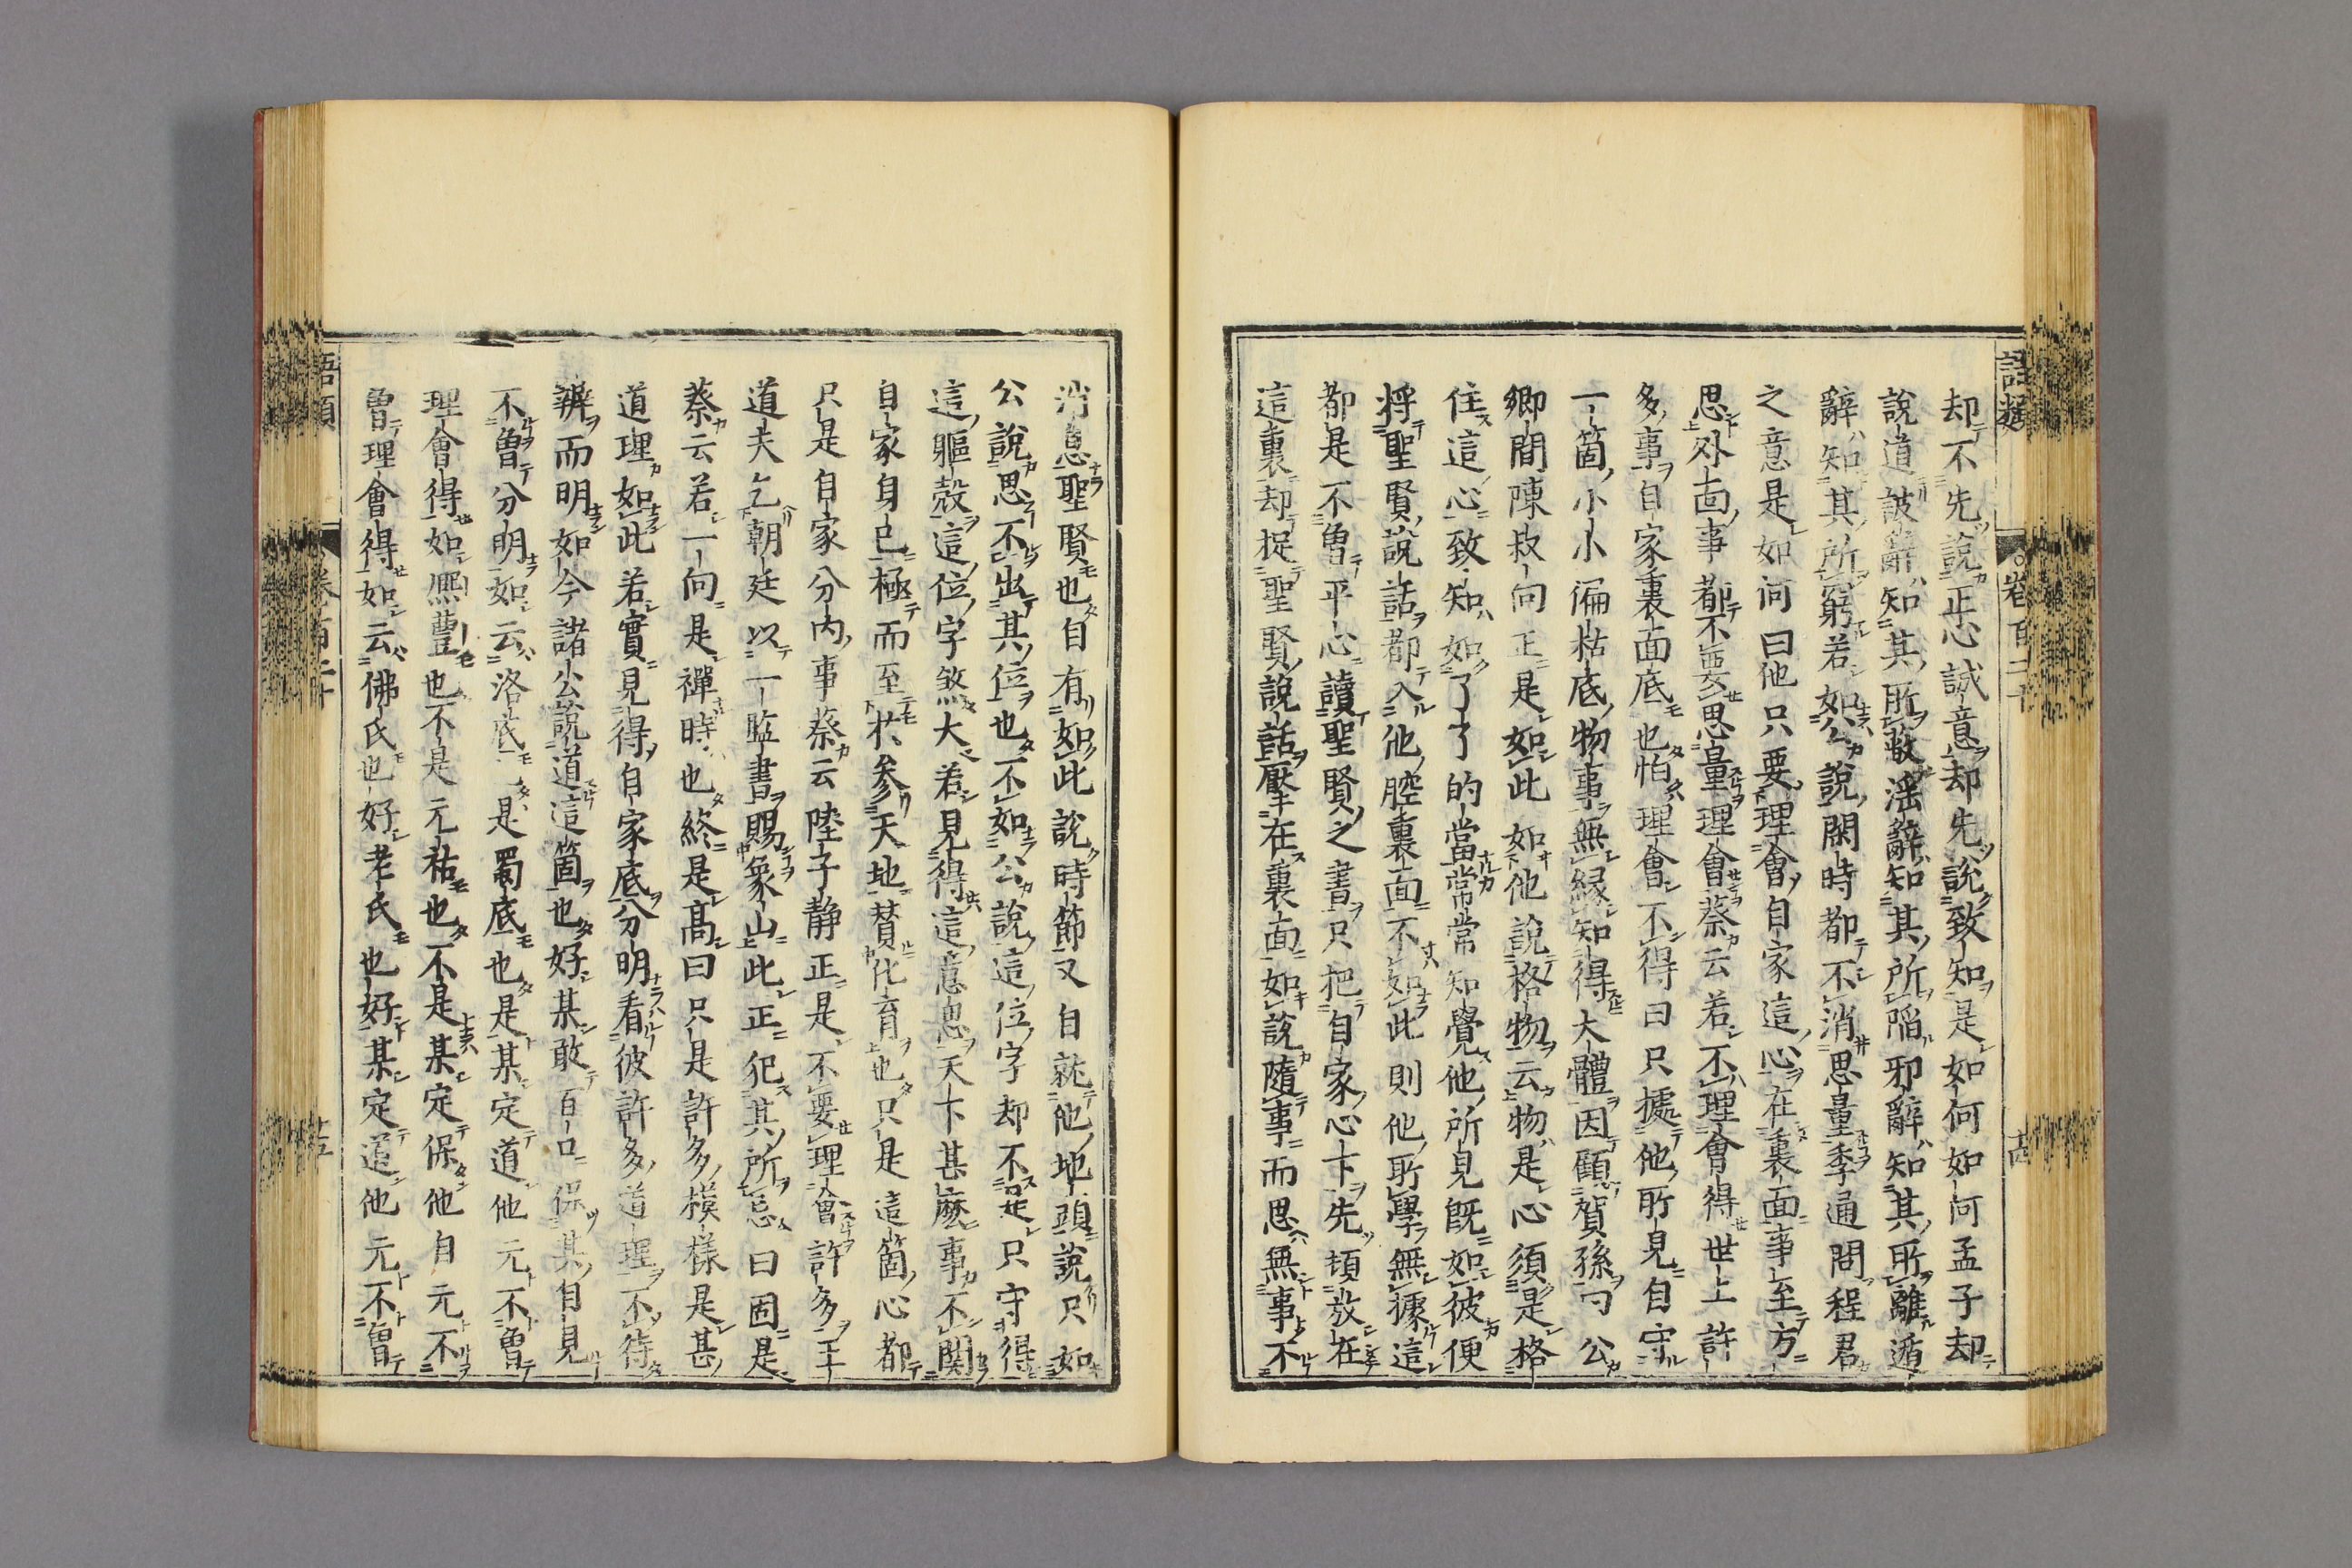 語類
卷百二十
十四
却不先說正心誠意却先說致知是如何如何孟子却
說道詖辭知其所蔽滛辭知其所陷邪辭知其所離遁
辭知其所窮若如公說閑時都不消思量季通問程君
之意是如何曰他只要理會自家這心在裏面事至方
思外面事都不要思量理會蔡云若不理會得世上許
多事自家裏面底也怕理會不得曰只據他所見自守
一箇小小偏枯底物事無緣知得大體因顧賀孫曰公
鄉間陳叔向正是如此如他說格物云物是心須是格
住這心致知如了了的當常常知覺他所見既如彼便
將聖賢說話都入他腔裏面不如此則他所學無據這
都是不曾平心讀聖賢之書只把自家心下先頓放在
這裏却捉聖賢說話壓在裏面如說隨事而思無事不
消息聖賢也自有如此說時節又自就他地頭說只如
公說思不出其位也不如公說這位字却不是只守得
這軀殼這位字煞大若見得這意思天下甚麽事不關
自家身已極而至於参天地賛化育也只是這箇心都
只是自家分内事蔡云陸子静正是不要理會許多王
道夫乞朝廷以一監書賜象山此正犯其所忌曰固是
蔡云若一向是禪時也終是高曰只是許多模樣是甚
道理如此若實見得自家底分明看彼許多道理不待
辨而明如今諸公說道這箇也好某敢百口保其自見
不曾分明如云洛底也是蜀底也是某定道他元不曾
理會得如熈豐也不是元祐也不是某定保他自元不
曾理會得如云佛氏也好老氏也好某定道他元不曾
語類
卷百二十
十五